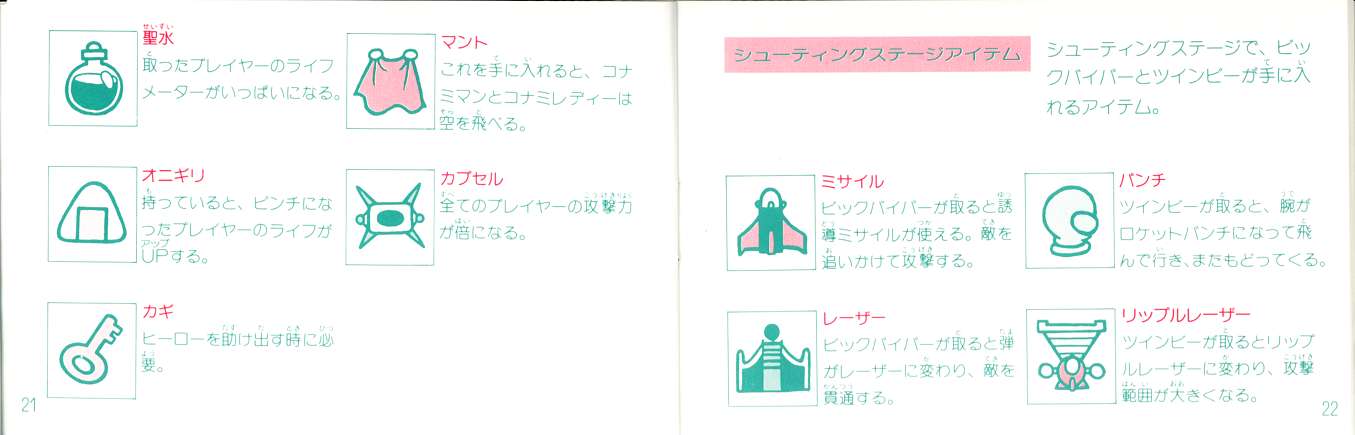 聖水
取ったプレイヤーのライフ
メーターがいっぱいになる。
オニギリ
持っていると、ピンチにな
ったプレイヤーのライフが
UPする。
カギ
ヒーローを助け出す時に必
要。
マント
これを手に入れると、コナ
ミマンとコナミレディーは
空を飛べる。
カプセル
全てのプレイヤーの攻撃力
が倍になる。
21
シューティングステージアイテム
シューティングステージで、ビッ
クバイパーとツインビーが手に入
れるアイテム。
ミサイル
ビックバイパーが取ると誘
導ミサイルが使える。敵を
追いかけて攻撃する。
レーザー
ビックバイパーが取ると弾
がレーザーに変わり、敵を
貫通する。
パンチ
ツインビーが取ると、腕が
ロケットパンチになって飛
んで行き、またもどってくる。
リップルレーザー
ツインビーが取るとリップ
ルレーザーに変わり、攻撃
範囲が大きくなる。
22